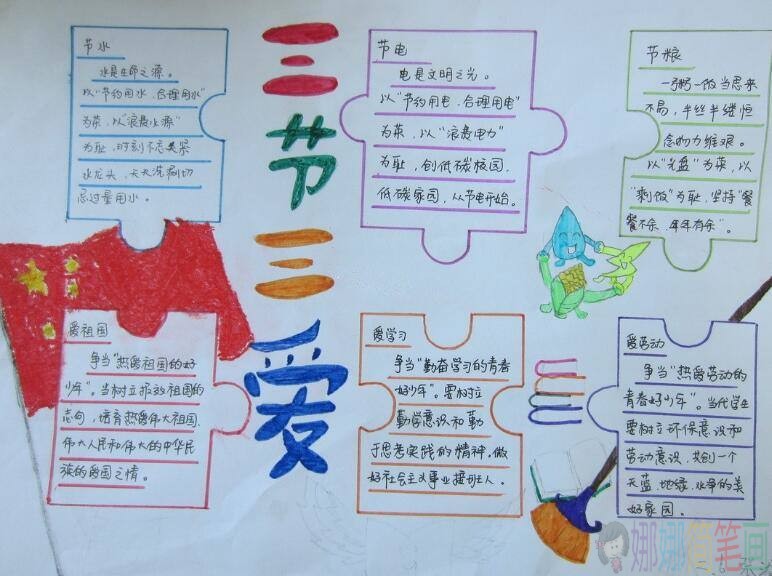 三节三爱
节水
水是生命之源。
以"节约用水,合理用水"
为荣,以"浪费水源"
为耻,时刻不忘关紧
水龙头,天天洗刷切
忌过量用水。
节电
电是文明之光。
以"节约用电,合理用电"
为荣,以"浪费电力"
为耻,创低碳校园,
低碳家园,从节电开始。
节粮
一粥一饭当思来
不易,半丝半缕恒
念物力维艰。
以"光盘"为荣,以
"剩饭"为耻,坚持"餐
餐不余,年年有余"。
爱祖国
争当"热爱祖国的好
少年"。当树立报效祖国的
志向,培育热爱伟大祖国、
伟大人民和伟大的中华民
族的爱国之情。
爱学习
争当"勤奋学习的青春
好少年"。要树立
勤学意识和勤
于思考实践的精神,做
好社会主义事业接班人。
爱劳动
争当"热爱劳动的
青春好少年"。当代学生
要树立环保意识和
劳动意识,共创一个
天蓝、地绿、水净的美
好家园。
娜娜简笔画